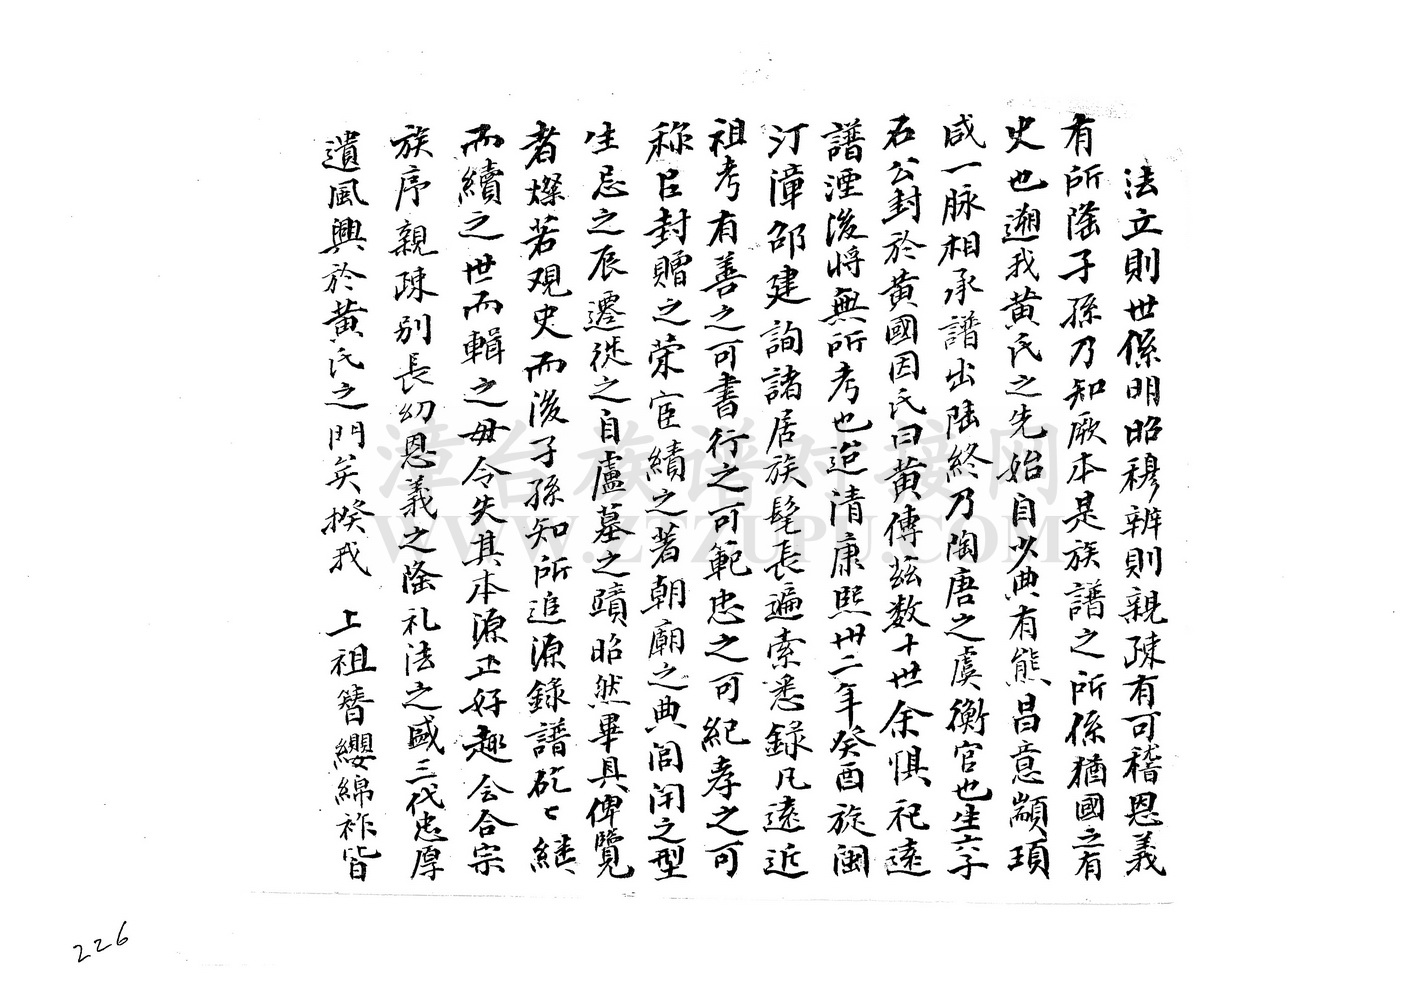 法立則世係明昭穆辨則親疎有可稽恩義
有所隆子孫乃知厥本是族譜之所係猶國之有
史也遡我黄氏之先始自少典有熊昌意顓頊
咸一脉相承譜出陆終乃陶唐之虞衡官也生六子
石公封於黄國因氏曰黄傳兹数十世余惧祀遠
譜湮後將無所考也迨清康熙卅二年癸酉旋閩
汀漳邵建詢諸居族髦長遍索悉錄凡遠近
祖考有善之可書行之可範忠之可紀孝之可
称召封贈之荣宦績之著朝廟之典閤闲之型
生忌之辰遷徙之自盧墓之蹟昭然畢具俾覽
者燦若观史而後子孫知所追源錄譜矻々継
而續之世而輯之毋令失其本源正好趣会合宗
族序親疎别長幼恩義之隆礼法之盛三代忠厚
遺風興於黄氏之門矣揆我 上祖簪纓綿祚皆
漳台族谱对接网
WWW.ZTZUPU.COM
226